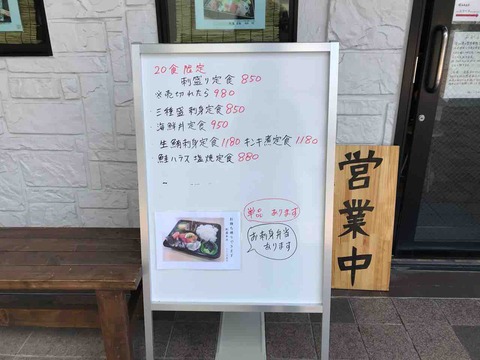 20食 限定
刺盛り定食 850
※売切れたら 980
・三種盛 刺身定食 850
・海鮮丼定食 950
・生鮪刺身定食 1180 キンキ煮定食 1180
・鮭ハラス 塩焼定食 880
単品 あります
お刺身弁当
あります
営業中